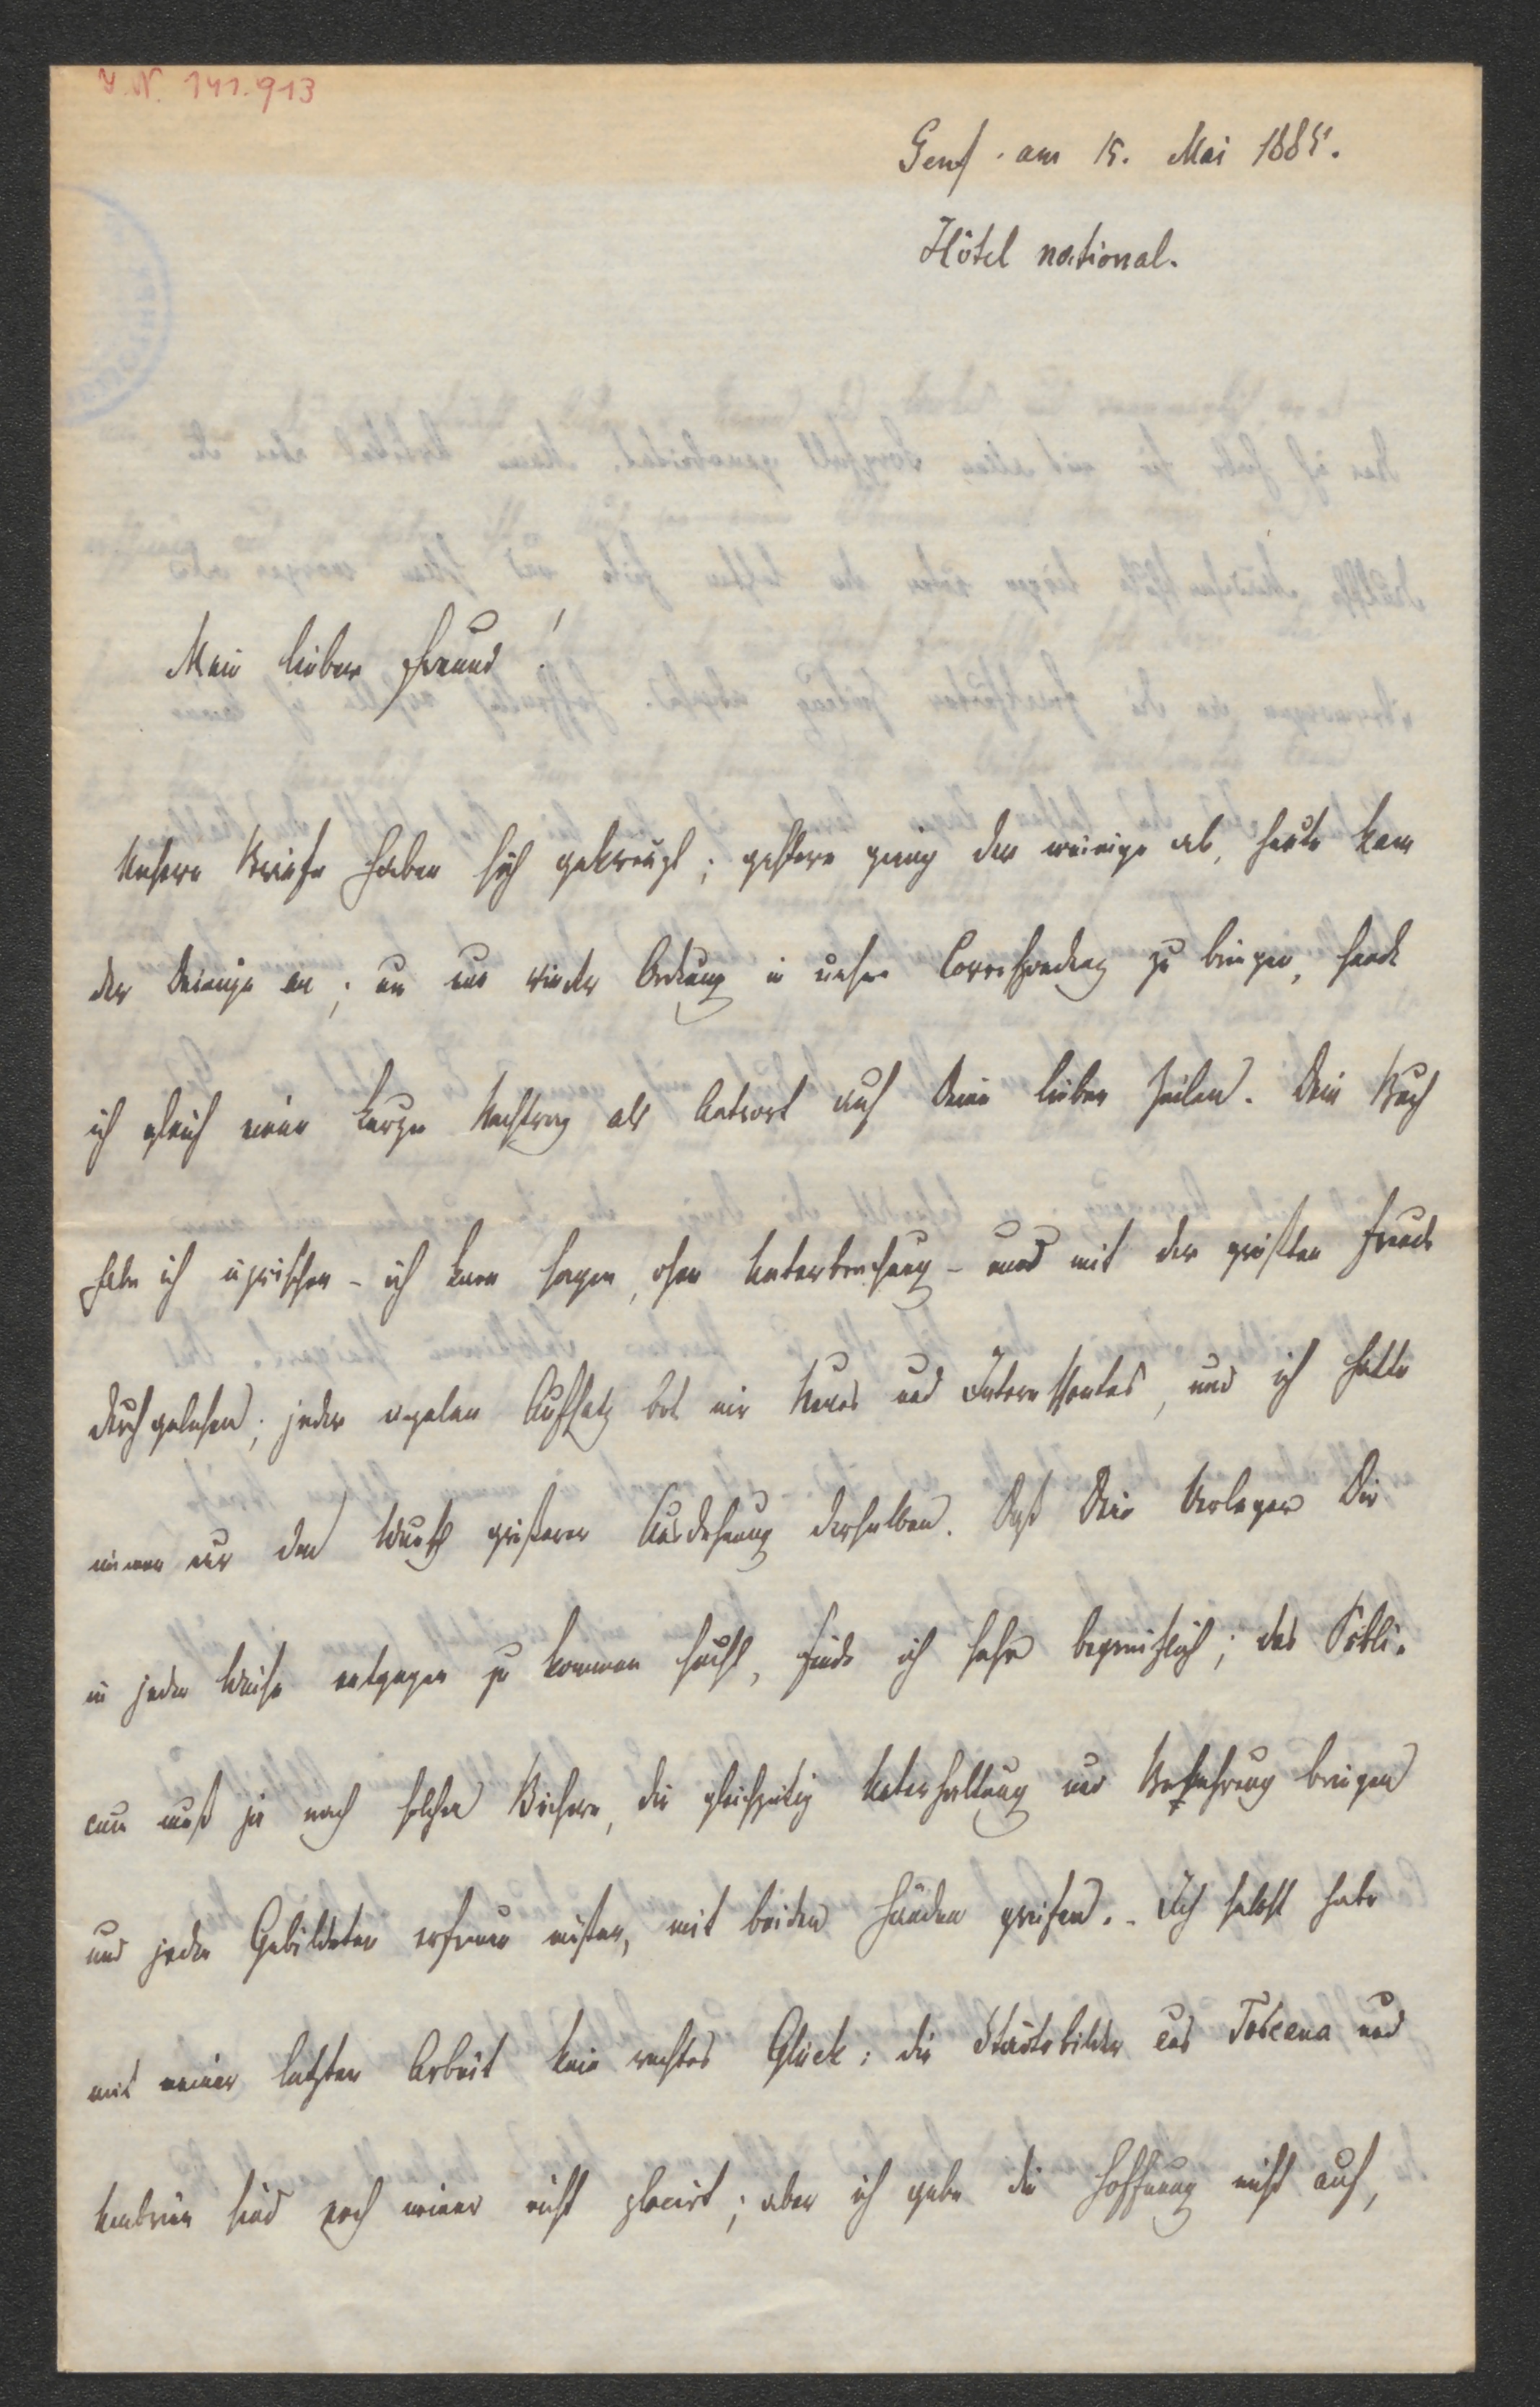 I.N. 141.913
Genf. am 15. Mai 1885.
Hôtel national.
Mein lieber Freund!
Unsere Briefe haben sich gekreuzt; gestern ging der meinige ab, heute kam
der Deinige an; um nun wieder Ordnung in unsere Correspondenz zu bringen, sende
ich gleich einen kurzen Nachtrag als Antwort auf Deine lieben Zeilen. Dein Buch
habe ich inzwischen - ich kann sagen, ohne Unterbrechung - und mit der größten Freude
durchgelesen; jeder einzelne Aufsatz bot mir Neues und Interessantes, und ich hatte
immer nur den Wunsch größerer Ausdehnung derselben. Daß Dein Verleger Dir
in jeder Weise entgegen zu kommen sucht, finde ich sehr begreiflich; das Publi-
cum muß ja nach solchen Büchern, die gleichzeitig Unterhaltung und Belehrung bringen
und jeden Gebildeten erfreuen müßen, mit beiden Händen greifen. - Ich selbst habe
mit meiner letzten Arbeit kein rechtes Glück; die Städtebilder aus Toscana und
Umbrien sind noch immer nicht placirt; aber ich gebe die Hoffnung nicht auf,